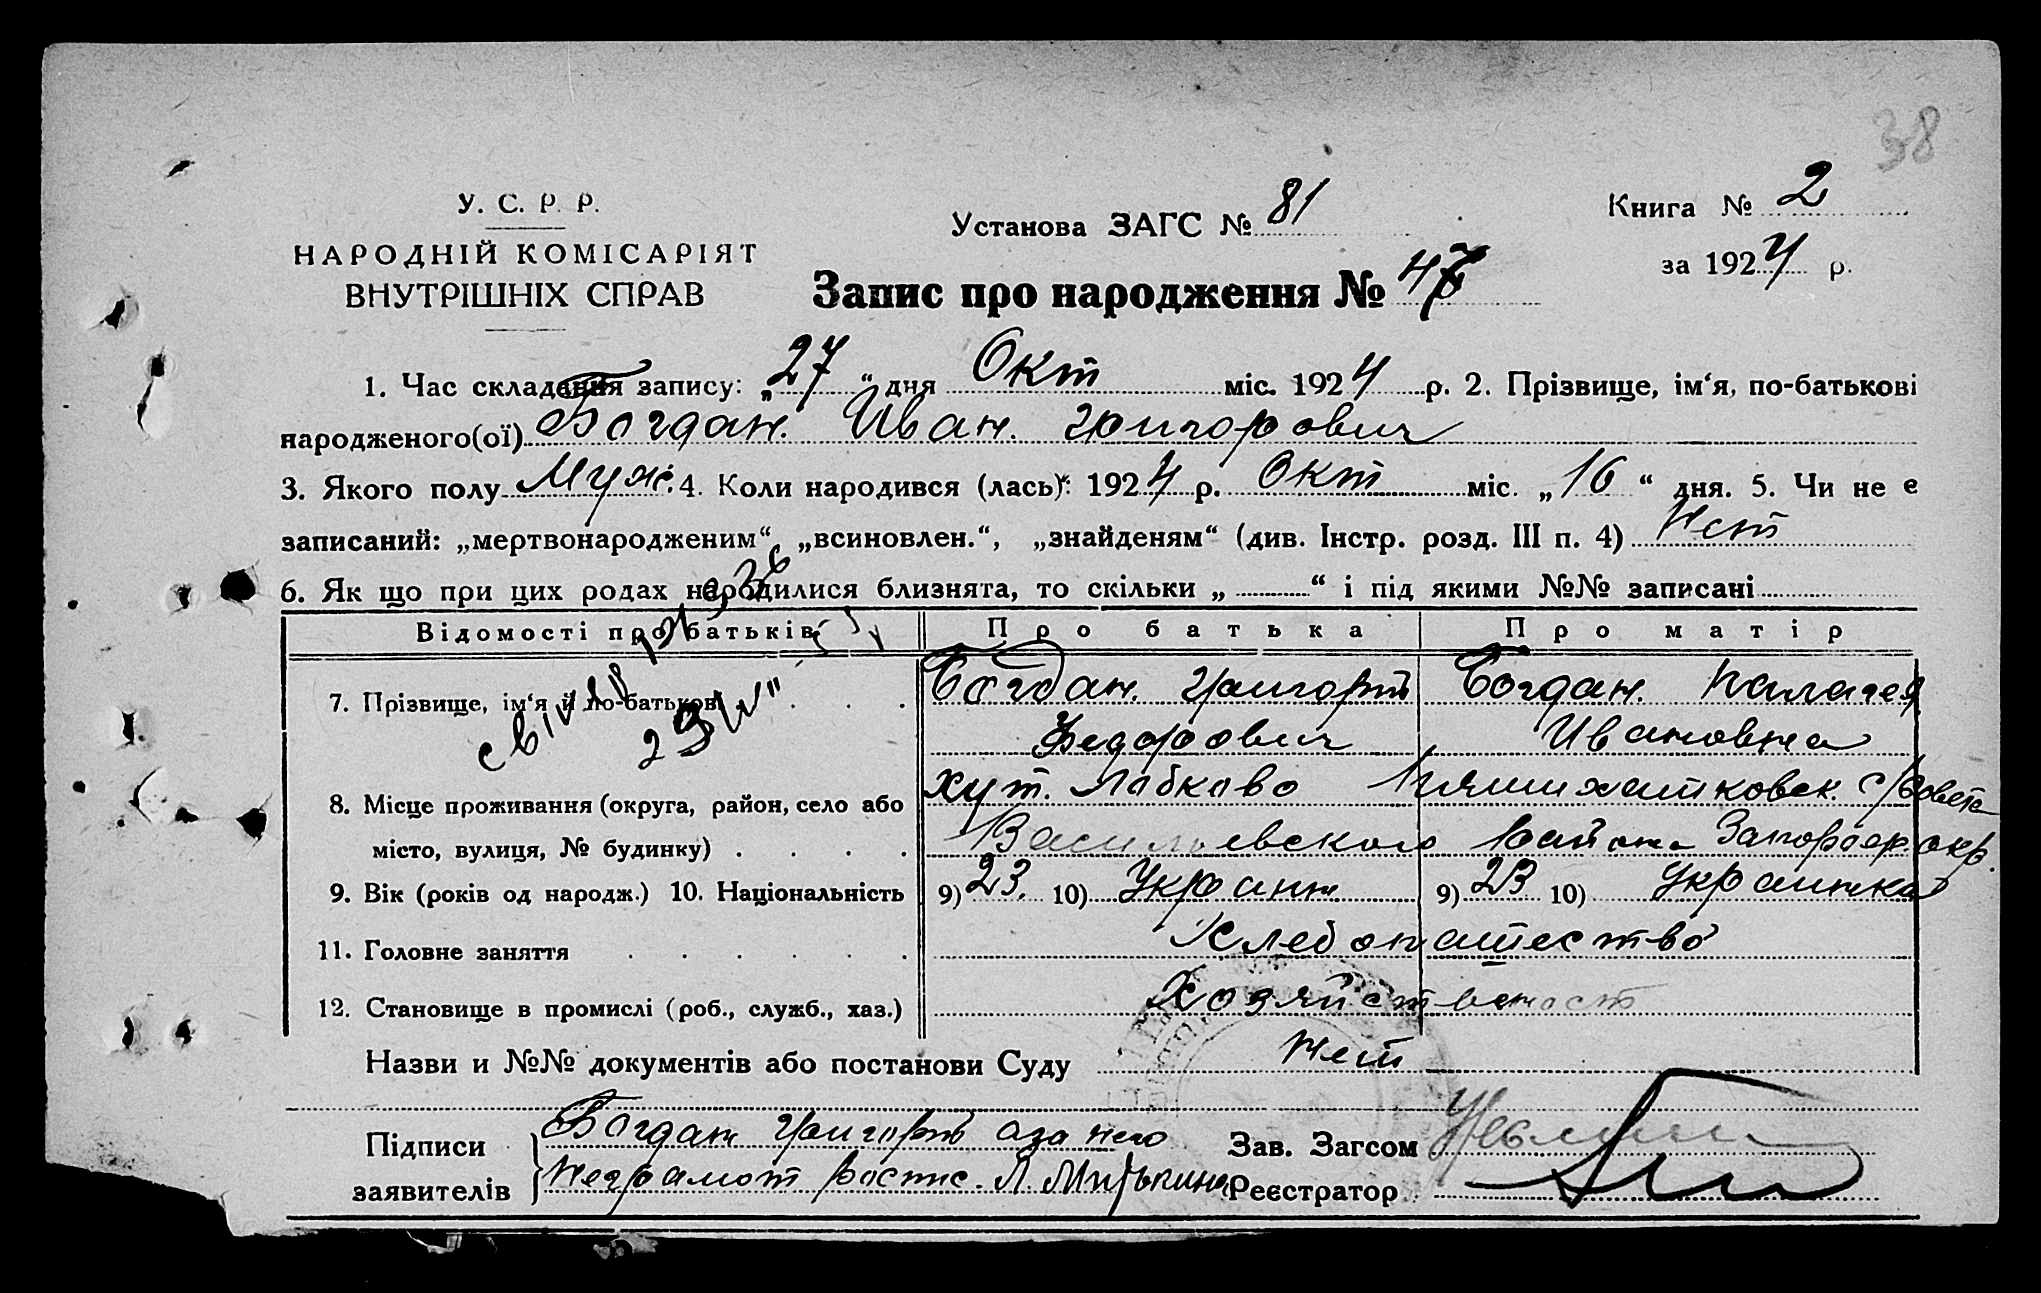 38
У. С. Р. Р.
НАРОДНІЙ КОМІСАРІЯТ
ВНУТРІШНІХ СПРАВ
Установа ЗАГС № 81
Книга № 2
за 1924 р.
Запис про народження № 47
1. Час складання запису: „27“ дня Окт міс. 1924 р. 2. Прізвище, ім‘я, по-батькові
народженого(ої) Богдан. Иван. Григорович
3. Якого полу Муж. 4. Коли народився (лась): 1924 р. Окт міс. „16“ дня. 5. Чи не є
записаний: „мертвонародженим“, „всиновлен.“, „знайденям“ (див. Інстр. розд. III п. 4) Нет
6. Як що при цих родах народилися близнята, то скільки „ “ і під якими №№ записані
Відомості про батьків Про батька Про матір
7. Прізвище, ім‘я й по-батькові Богдан. Григорий Богдан. Палагея
Федорович Ивановна
8. Місце проживання (округа, район, село або хут. Лобково с/совета
місто, вулиця, № будинку) Васильевского Района Запорож. окр.
9. Вік (років од народж.) 10. Національність 9) 23. 10) Украин 9) 23 10) Украинка
11. Головне заняття Хлебопашество
12. Становище в промислі (роб., служб., хаз.)
Назви и №№ документів або постанови Суду Нет
Підписи Богдан Григорий а за него
заявителів Неграмот роспис. Л.
Зав. Загсом
Реєстратор